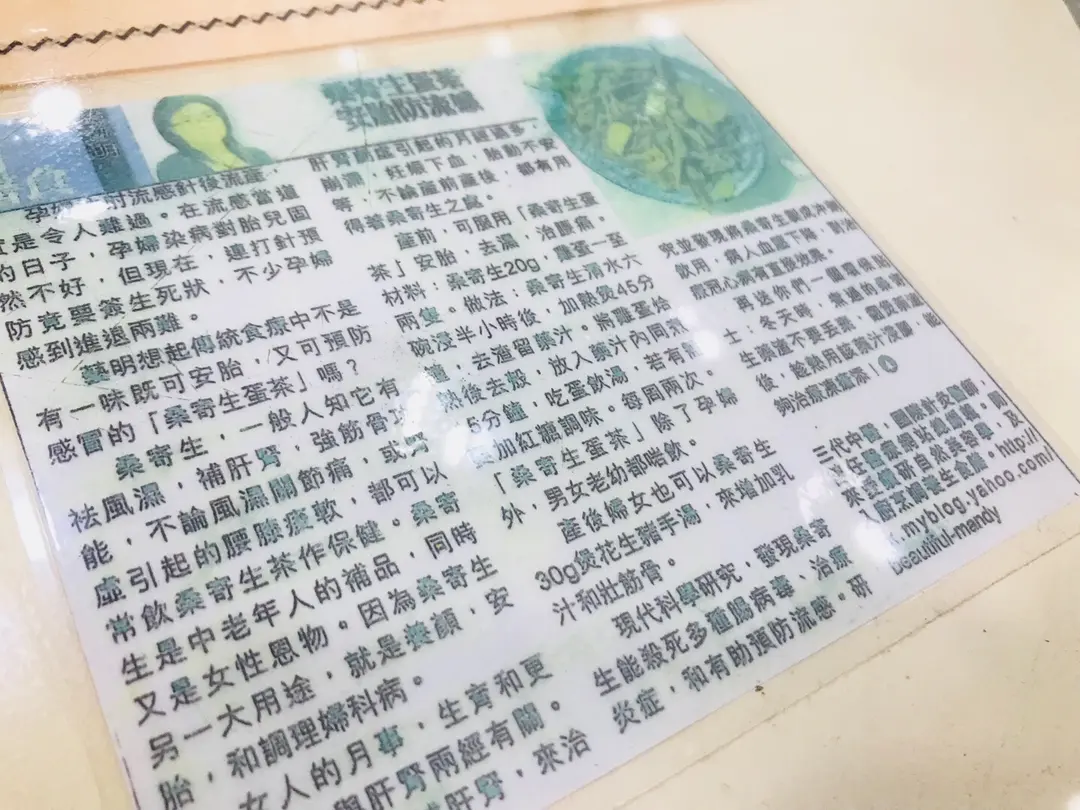 桑寄生蛋茶
安胎防流感
流感針後流產,
是令人難過。在流感當道
的日子,孕婦染病對胎兒固
然不好,但現在,連打針預
防竟要簽生死狀,不少孕婦
感到進退兩難。
藝明想起傳統食療中不是
有一味既可安胎,又可預防
感冒的「桑寄生蛋茶」嗎?
桑寄生,一般人知它有
祛風濕,補肝腎,強筋骨
能,不論風濕關節痛,或腎
虛引起的腰膝痠軟,都可以
常飲桑寄生茶作保健。桑寄
生是中老年人的補品,同時
又是女性恩物。因為桑寄生
另一大用途,就是養顏,安
胎,和調理婦科病。
女人的月事,生育和更
與肝腎兩經有關。
肝腎,來治
肝腎虧虛引起的月經過多,
崩漏,妊娠下血,胎動不安
等,不論產前產後,都有用
得着桑寄生之處。
產前,可服用「桑寄生蛋
茶」安胎,去濕,治腰痛。
材料:桑寄生20g,雞蛋一至
兩隻。做法:桑寄生清水六
碗浸半小時後,加熱煲45分
鐘,去渣留藥汁。將雞蛋烚
熟後去殼,放入藥汁內同煮
5分鐘,吃蛋飲湯,若有
加紅糖調味。每周兩次。
「桑寄生蛋茶」除了孕婦
外,男女老幼都啱飲。
產後婦女也可以桑寄生
30g煲花生豬手湯,來增加乳
汁和壯筋骨。
現代科學研究,發現桑寄
生能殺死多種腸病毒、治療
炎症,和有助預防流感。研
究並發現將桑寄生製成沖劑
飲用,病人血壓下降,對治
療冠心病有直接效果。
再送你們一個環保貼
士:冬天時,煲過的桑寄
生藥渣不要丟棄,
後,趁熱用該藥汁浸腳,能
夠治療凍瘡添!
三代中醫,國際針灸醫師,
現任醫療網站總編輯。
來愛鑽研自然美容學,及
入廚烹調養生食譜。http://
.myblog.yahoo.com/
beautiful-mandy